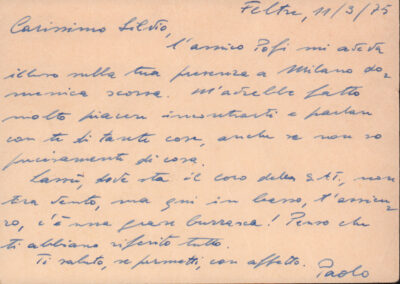 Feltre, 11/3/75
Carissimo Silvio,
l'amico Pofi mi aveva
illuso sulla tua presenza a Milano do-
menica scorsa. M'avrebbe fatto
molto piacere incontrarti e parlare
con te di tante cose, anche se non so
precisamente di cosa.
Lassù, dove sta il coro della SAT, non
tira vento, ma qui in basso, t'assicu-
ro, c'è una gran burrasca! Penso che
ti abbiano riferito tutto.
Ti saluto, se permetti, con affetto.
Paolo